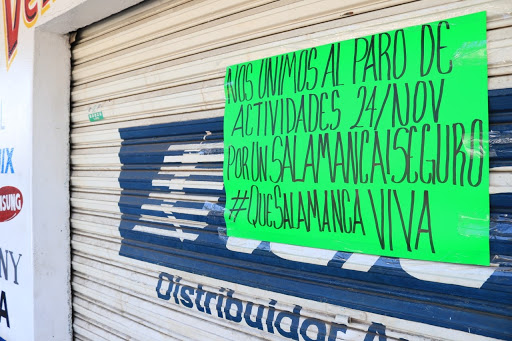 NOS UNIMOS AL PARO DE
ACTIVIDADES 24/NOV
POR UN SALAMANCA! SEGURO
#QUESALAMANCA VIVA
Distribuidor